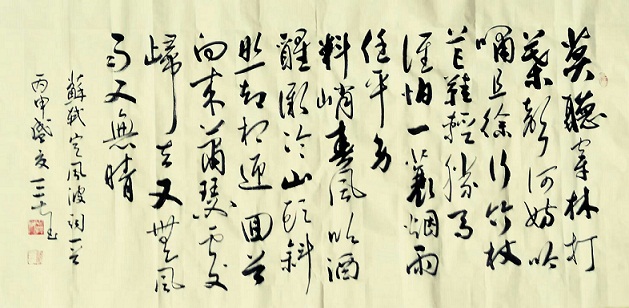 莫聽穿林打
葉聲何妨吟
嘯且徐行竹杖
芒鞋輕勝馬
誰怕一蓑烟雨
任平生
料峭春風吹酒
醒微冷山頭斜
照却相迎回首
向來蕭瑟處
歸去又無風
雨又無晴
蘇軾定風波詞一首
丙申盛夏